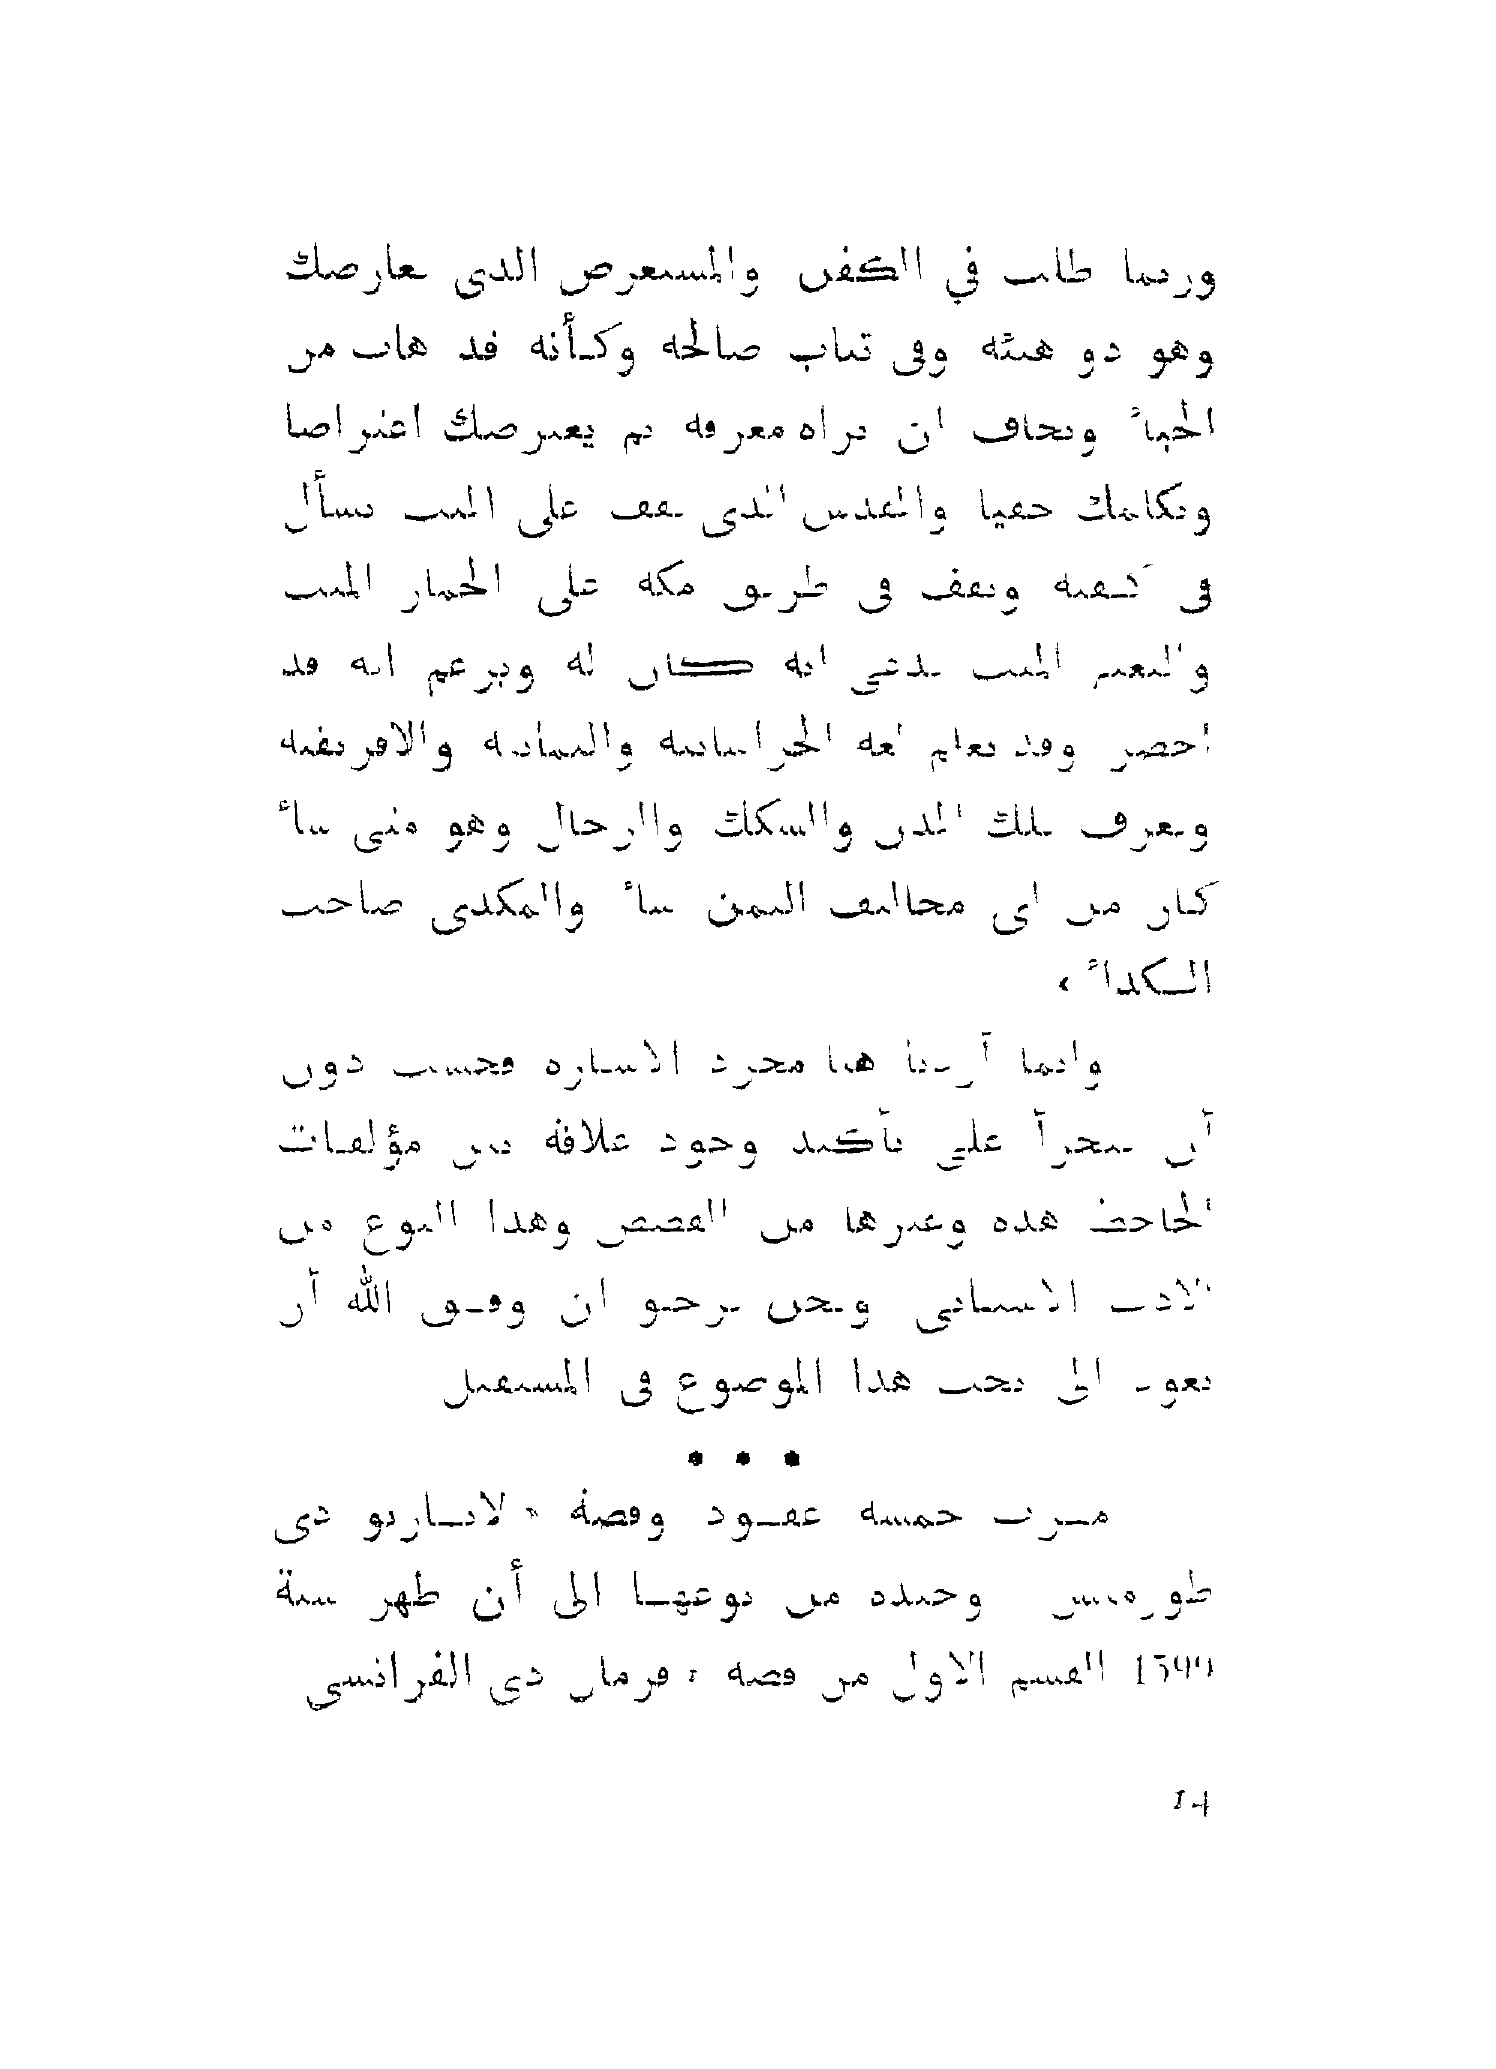 وربما طلب في الكفن والمستعرض الذي يعارضك
وهو ذو هيئة وفي ثياب صالحة وكأنه قد هاب من
الحياء ويخاف ان يراه معرفة ثم يعترضك اعتراضا
ويكلمك خفيا والمقدس الذي يقف على الميت يسأل
في كفنه ويقف في طريق مكة على الحمار الميت
والبعير الميت يدعي انه كان له ويزعم انه قد
احصر وقد تعلم لغة الخراسانية واليمانية والافريقية
ويعرف تلك المدن والسكك والرجال وهو متى شاء
كان من اي مخاليف اليمن شاء والمكدي صاحب
الكداء »
وانما أردنا هنا مجرد الاشارة فحسب دون
أن نتجرأ على تأكيد وجود علاقة بين مؤلفات
الجاحظ هذه وغيرها من القصص وهذا النوع من
الادب الاسباني ونحن نرجو ان وفق الله أن
نعود الى بحث هذا الموضوع في المستقبل
• • •
مرت خمسة عقود وقصة « لاثاريو دي
طورميس وحيدة من نوعها الى أن ظهر سنة
1599 القسم الاول من قصة « قزمان دي الفرانسي
14